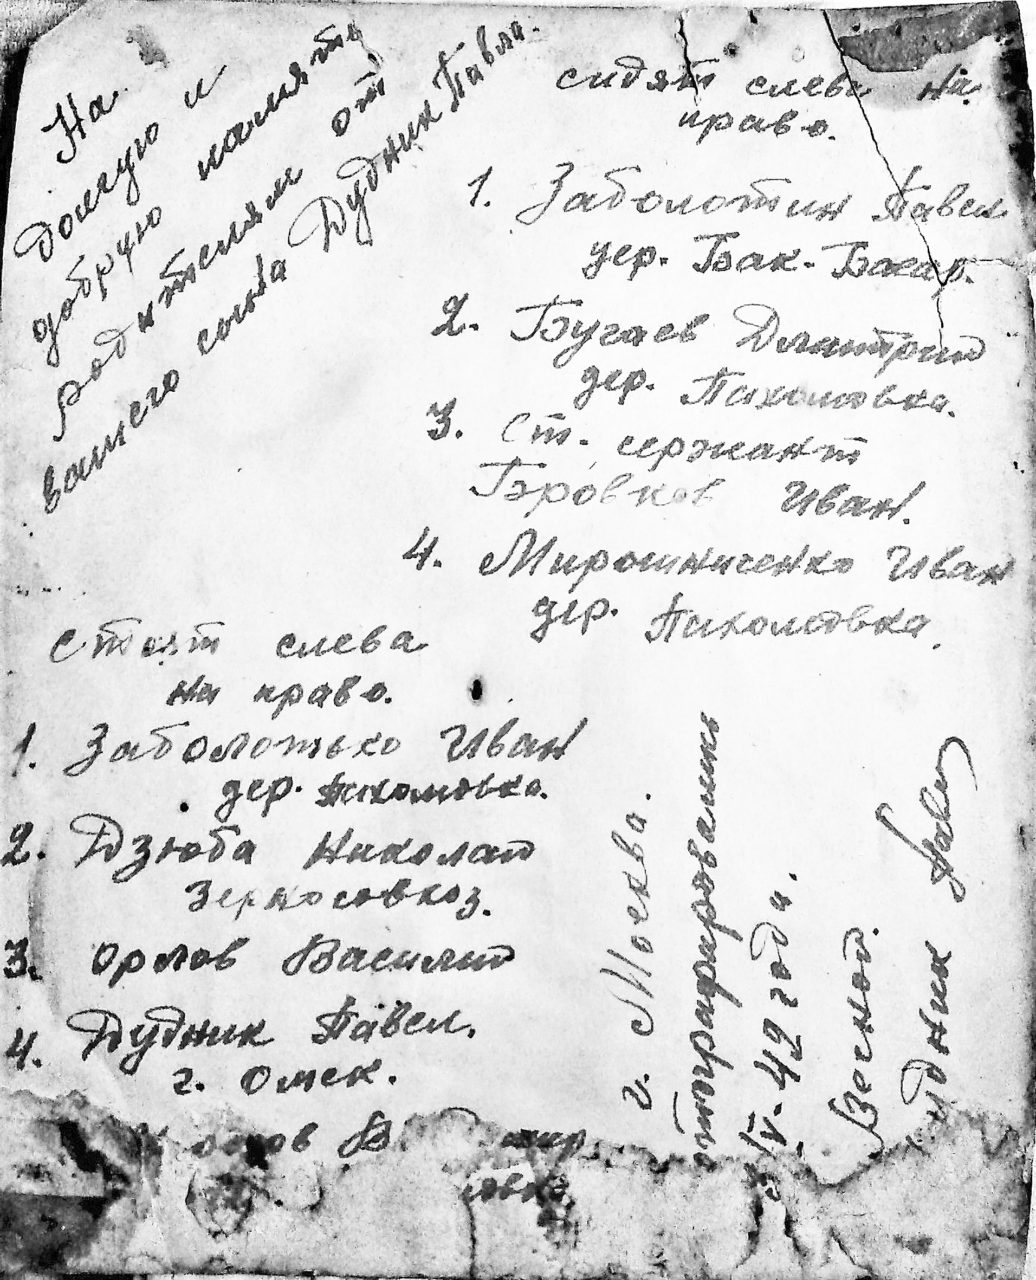 На
долгую и
добрую память
родителям от
вашего сына Дудник Павла.
сидят слева на
право.
1. Заболотин Павел
дер. Бак-Башар.
2. Бугаев Дмитрий
дер. Пихтовка.
3. Ст. сержант
Боровков Иван.
4. Мирошниченко Иван
дер.
Стоят слева
на право.
1. Заболотько Иван
дер.
2. Дзюба Николай
Зерносовхоз.
3. Орлов Василий
4. Дудник Павел.
г. Омск.
г. Москва.
3/V-42 года.
Весной.